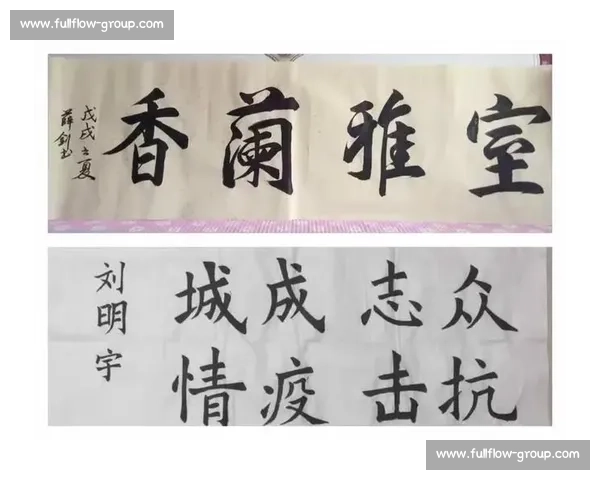 www.fullflow-group.com
室雅蘭香
戊戌之夏
薛剑书
众志成城
抗击疫情
刘明宇
www.fullflow-group.com